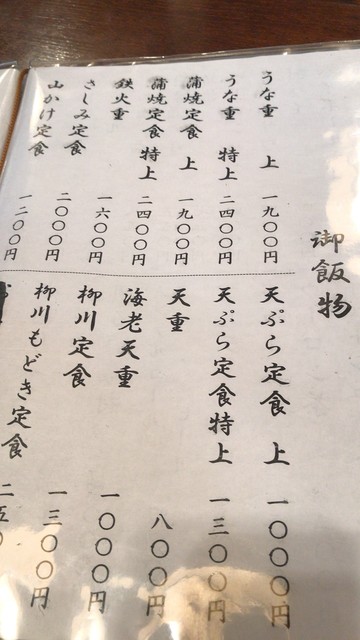 御飯物
うな重 上 一九〇〇円
うな重 特上 二四〇〇円
蒲焼定食 上 一九〇〇円
蒲焼定食 特上 二四〇〇円
鉄火重 一六〇〇円
さしみ定食 二〇〇〇円
山かけ定食 一二〇〇円
天ぷら定食 上 一〇〇〇円
天ぷら定食特上 一三〇〇円
天重 八〇〇円
海老天重 一〇〇〇円
柳川定食 一三〇〇円
柳川もどき定食